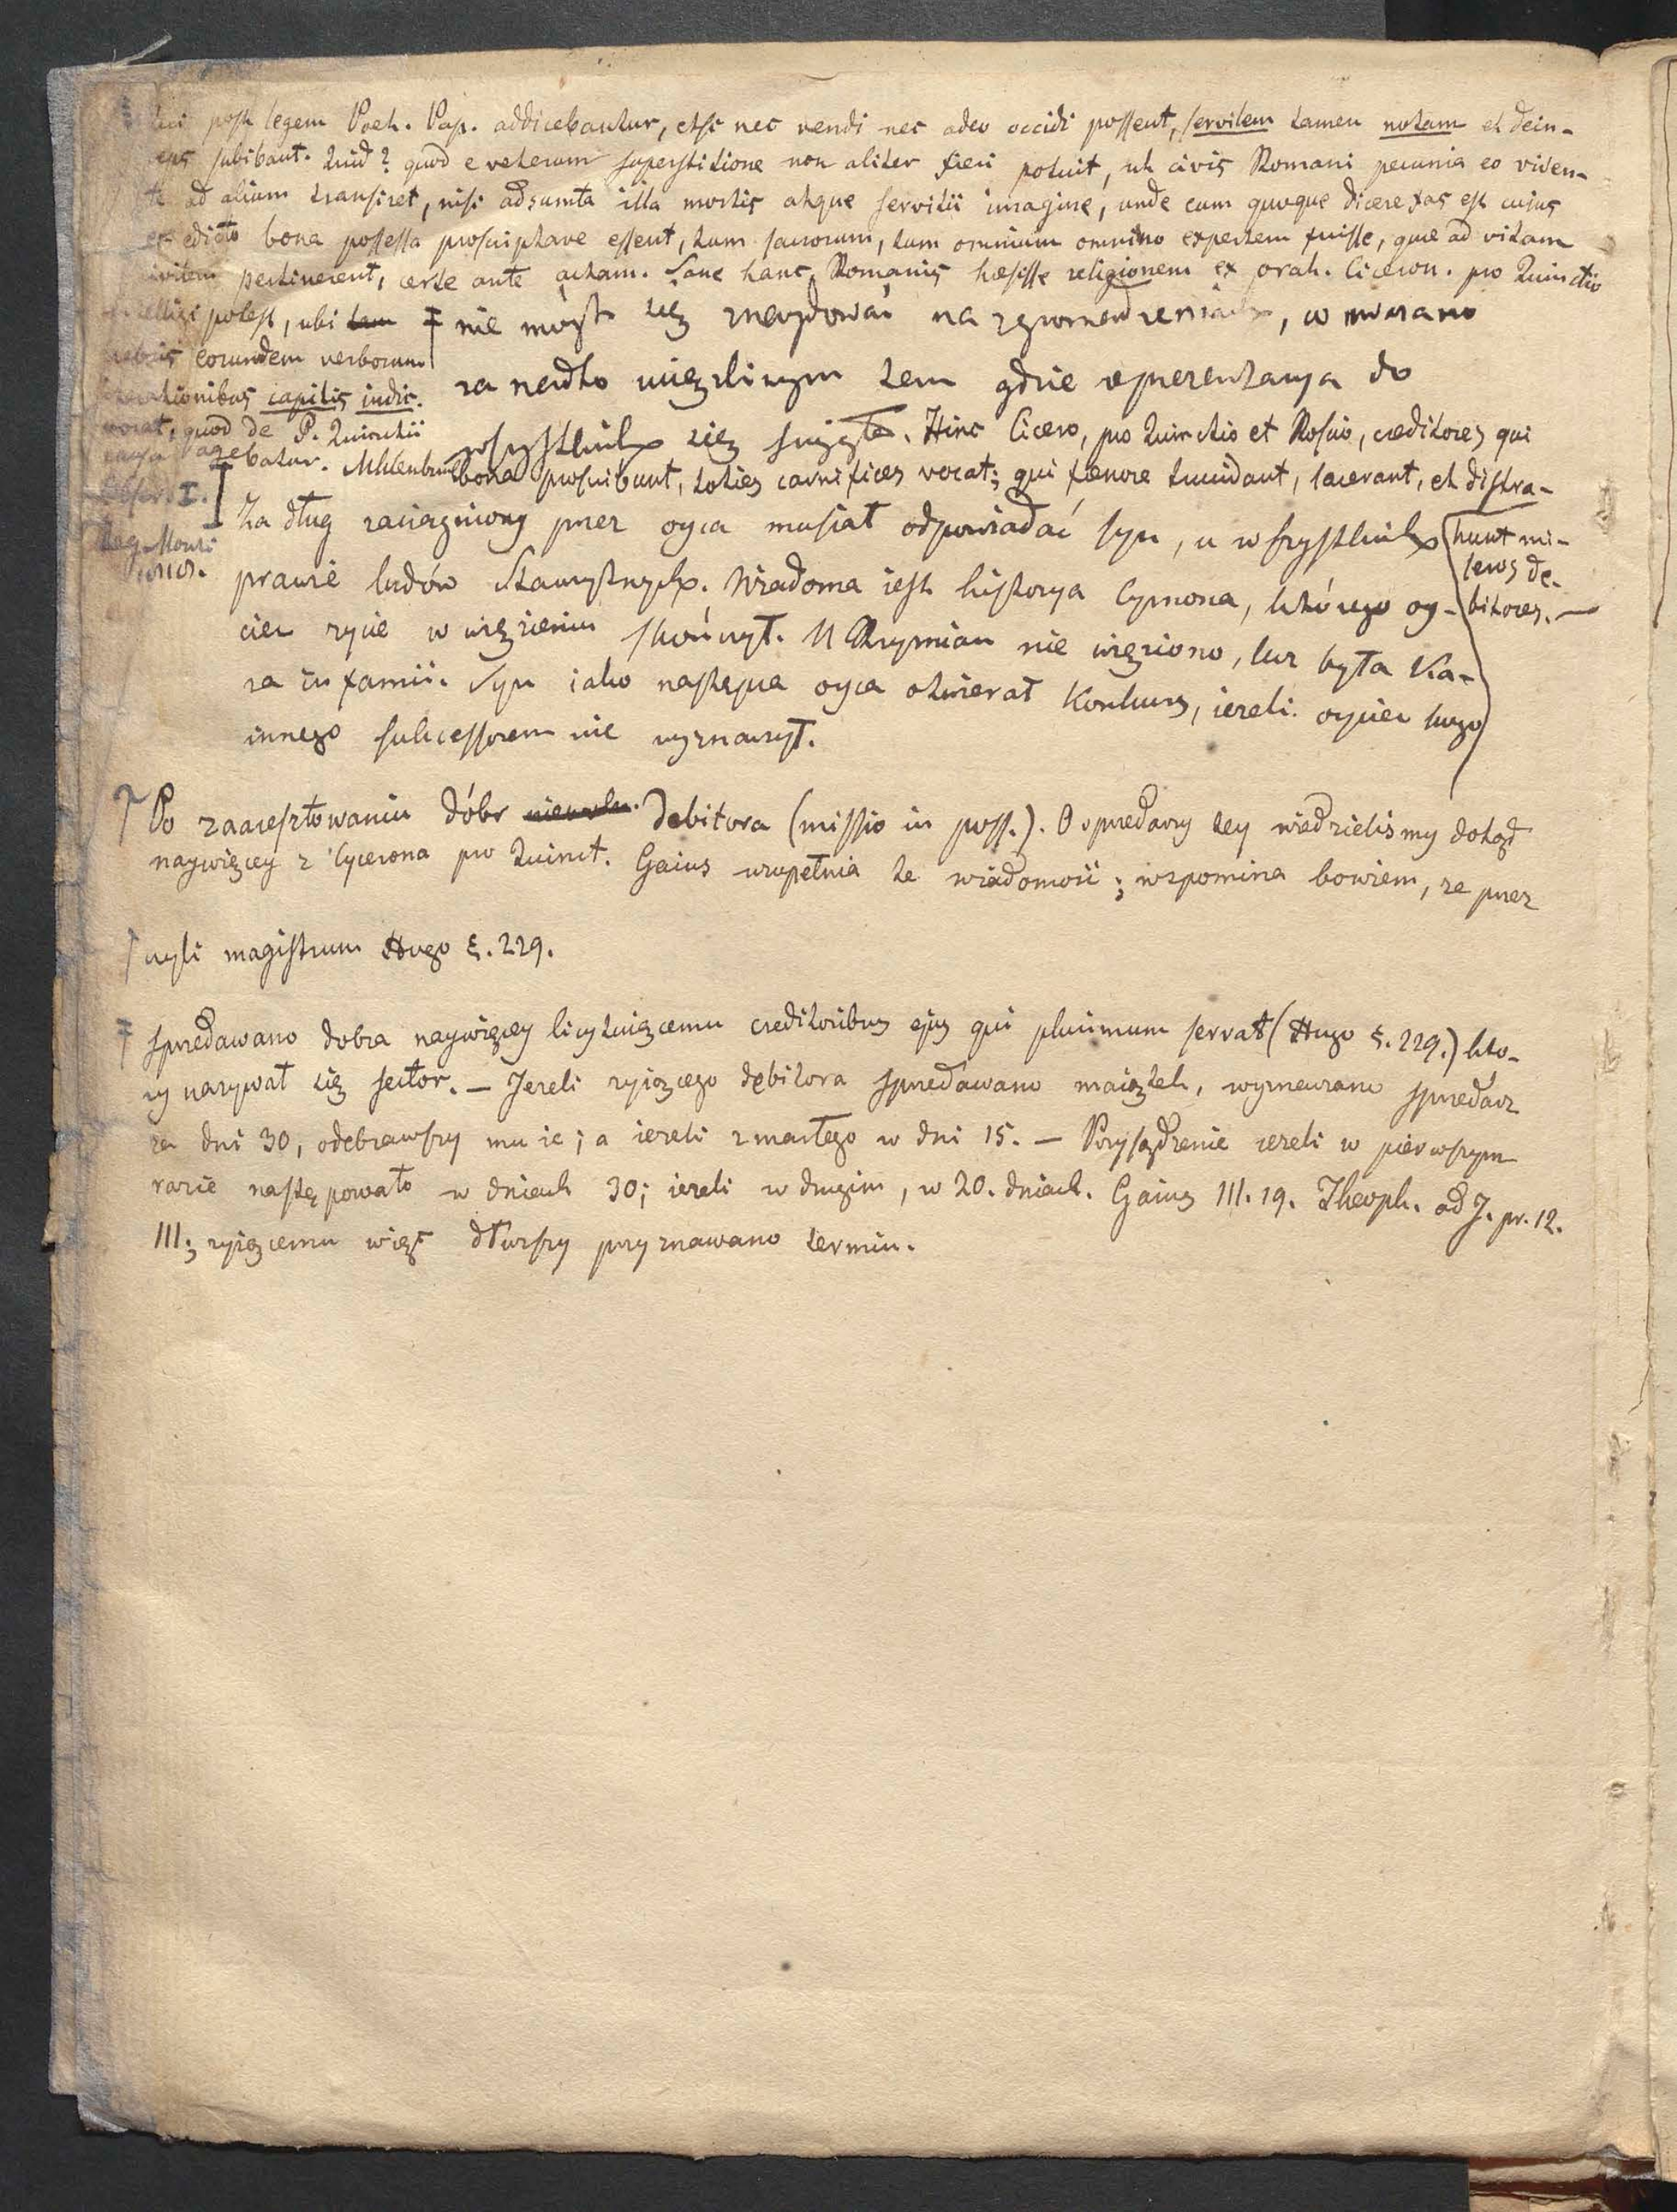 post legem Poet. Pap. addicebantur, etsi nec vendi nec adeo occidi possent, servilem tamen notam et dein-
ceps subibant. Quid? quod e veterum superstitione non aliter fieri potuit, ut civis Romani pecunia eo viven-
te ad alium transiret, nisi adsumta illa mortis atque servitii imagine, unde eum quoque dicere fas est cujus
ex edicto bona possessa proscriptave essent, tum sacrorum, tum omnium omnino expertem fuisse, quae ad vitam
civilem pertinerent, certe ante actam. Sane hanc Romanis haesisse religionem ex orat. Ciceron. pro Quinctio
intelligi potest, ubi
crebris eorundem verborum
iterationibus capitis indic.
vocat, quod de P. Quinctii
agebatur. Mhlenbruch
Observ. I.
‡ nie mógł się znaydować na zgromadzeniach, uważano
za nadto wieczliwym tem gdzie reprezentacya do
wszystkich się ściągała. Hinc Cicero, pro Quinctio et Roscio, creditores qui
bona proscribunt, toties carnifices vocat; qui fenore trucidant, lacerant, et distra-
hunt mi-
seros de-
bitores. —
Za dług zaciągniony przez oyca musiał odpowiadać syn, u wszystkich
prawie ludów starożytnych. Wiadoma iest historya Cymona, którego oy-
ciec życie w więzieniu skończył. U Rzymian nie więziono, lecz była ka-
ra infamii. Syn iako następca oyca otwierał konkurs, ieżeli oyciec kogo
innego sukcessorem nie wyznaczył.
Ϯ Po zaaresztowaniu dóbr Debitora (missio in poss.). O sprzedaży tey wiedzieliśmy dotąd
naywięcey z Cycerona pro Quinct. Gaius uzupełnia te wiadomość; wspomina bowiem, że przez
czyli magistrum Hugo §. 229.
‡ sprzedawano dobra naywięcey licytuiącemu creditoribus ejus qui plurimum servat (Hugo §. 229.) któ-
ry nazywał się sector. — Jeżeli żyiącego debitora sprzedawano maiątek, wyznaczano sprzedarz
za dni 30, odebrawszy mu ie; a ieżeli zmarłego w dni 15. — Przysądzenie ieżeli w pierwszym
razie następowało w dniach 30; ieżeli w drugim, w 20. dniach. Gaius III. 19. Theoph. ad J. pr. 12.
III.; żyiącemu więc dłuższy przyznawano termin.